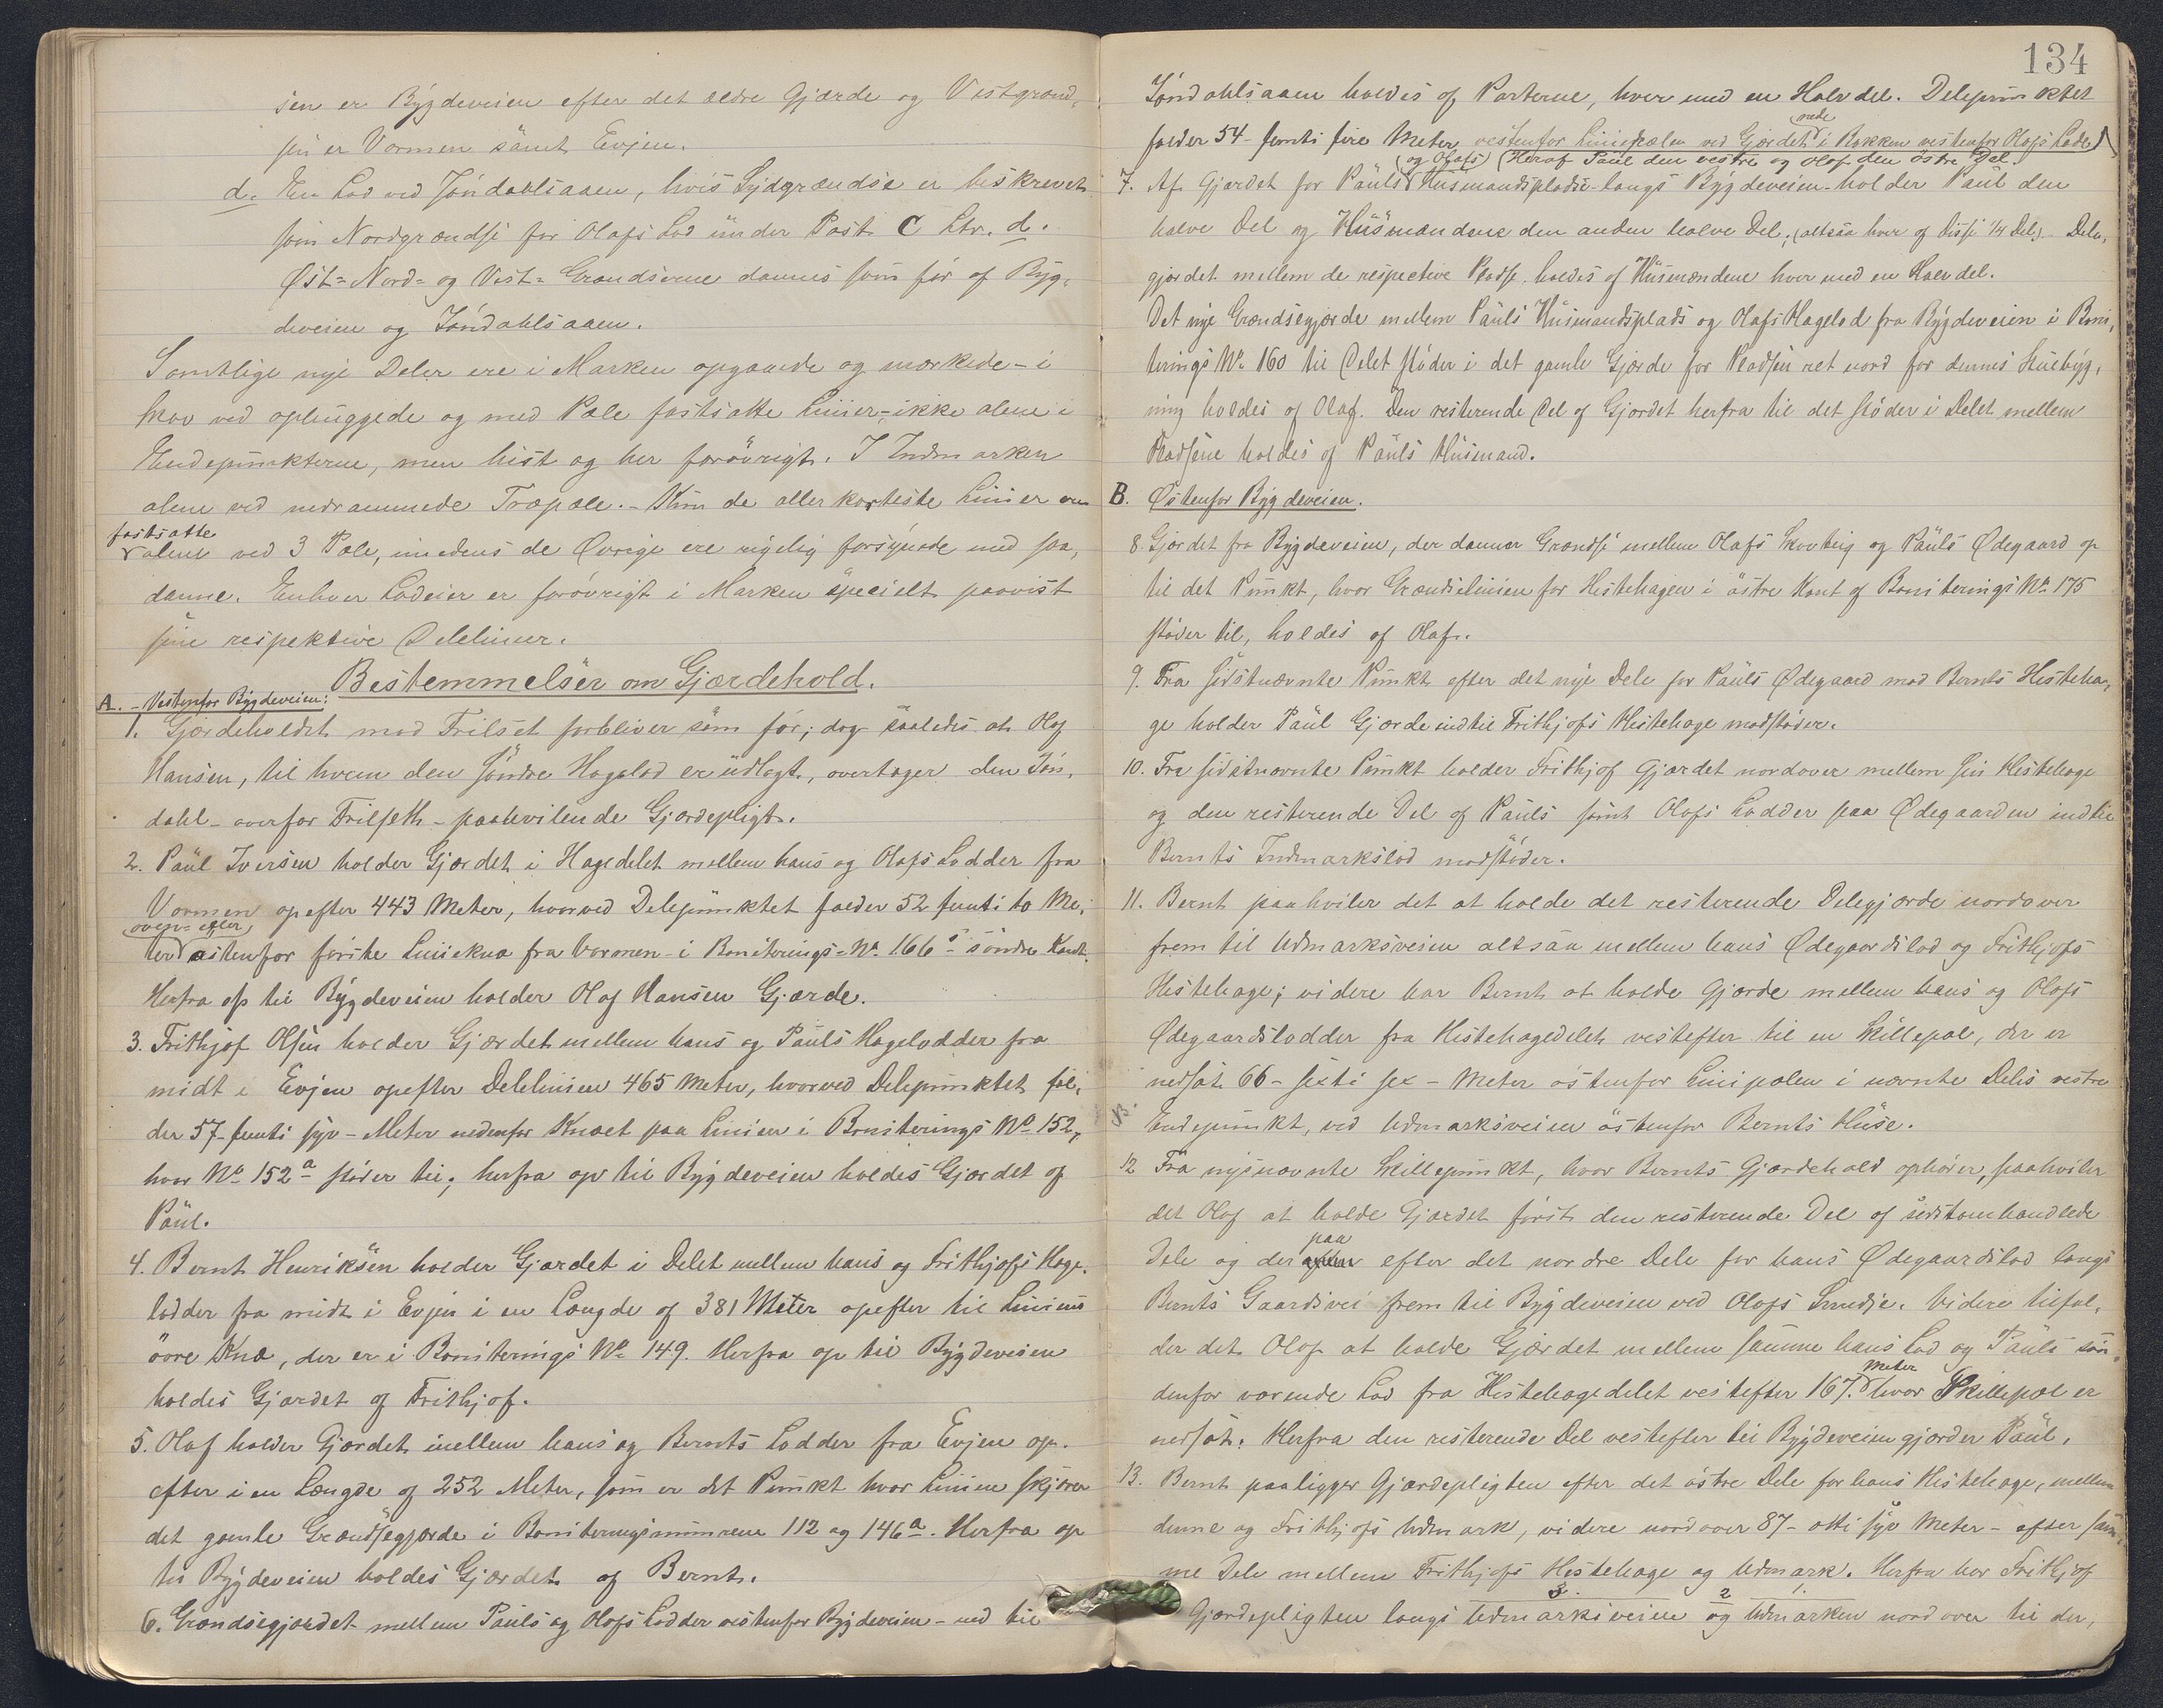 sen er Bygdeveien efter det ældre Gjærde og Vestgrænd,
sen er Vormen samt Evjen.
d. En Lod ved Jøndahlsaaen, hvis Sydgrændse er beskrevet
som Nordgrændse for Olafs Lod under Post C Ltr. d.
Øst- Nord- og Vest- Grændserne dannes som før af Byg,
deveien og Jøndahlsaaen.
Samtlige nye Deler ere i Marken opgaaede og mærkede - i
Skov ved ophuggede og med Pæle fastsatte Linier, - ikke alene i
Endepunkterne, men hist og her forøvrigt. I Indmarken
alene ved nedrammede Træpæle. - Kun de allerkorteste Linier ere
fastsatte
alene ved 3 Pæle, imedens de Øvrige ere rigelig forsynede med saa,
danne. Enhver Lodeier er forøvrigt i Marken specielt paavist
sine respektive Delelinier.
Bestemmelser om Gjærdehold.
A. - Vestenfor Bygdeveien:
1. Gjærdeholdet mod Frilset forbliver som før; dog saaledes at Olaf
Hansen, til hvem den søndre Hagelod er udlagt, overtager den Jøn,
dahl - overfor Frilseth - paahvilende Gjærdepligt.
2. Paul Iversen holder Gjærdet i Hagedelet mellem hans og Olafs Lodder fra
Vormen opefter 443 Meter, hvorved Delepunktet falder 52 femti to Me,
oven- eller
ter østenfor første Linieknæ fra Vormen - i Boniterings-No. 166 s søndre Kant.
Herfra op til Bygdeveien holder Olaf Hansen Gjærde.
3. Frithjof Olsen holder Gjærdet mellem hans og Pauls Hagelodder fra
midt i Evjen opefter Delelinien 465 Meter, hvorved Delepunktet fal,
der 57 - femti syv - Meter nedenfor Knæet paa Linien i Boniterings No 152,
hvor No 152 a støder til; herfra op til Bygdeveien holdes Gjærdet af
Paul.
4. Bernt Henriksen holder Gjærdet i Delet mellem hans og Frithjofs Hage,
lodder fra midt i Evjen i en Længde af 381 Meter opefter til Liniens
øvre Knæ, der er i Boniterings No 149. Herfra op til Bygdeveien
holdes Gjærdet af Frithjof.
5. Olaf holder Gjærdet mellem hans og Bernts Lodder fra Evjen op,
efter i en Længde af 252 Meter, som er det Punkt hvor Linien skjærer
det gamle Grændsegjærde i Boniteringsnumrene 112 og 146 a. Herfra op
til Bygdeveien holdes Gjærdet af Bernt.
6. Grændsegjærdet mellem Pauls og Olafs Lodder vestenfor Bygdeveien - ned til
134
Jøndahlsaaen holdes af Parterne, hver med en Halvdel. Delepunktet
nede
falder 54 - femti fire Meter vestenfor Liniepælen ved Gjærdet i Bakken vestenfor Olafs Lade)
(og Olafs) (Heraf Paul den vestre og Olaf den østre Del.
7. Af Gjærdet for Pauls Husmandspladse - langs Bygdeveien - holder Paul den
halve Del og Husmændene den anden halve Del; (altsaa hver af disse 1/4 Del). Dele,
gjærdet mellem de respective Pladse holdes af Husmændene hver med en Halvdel.
Det nye Grændsegjærde mellem Pauls Husmandsplads og Olafs Hagelod fra Bygdeveien i Boni,
terings No. 160 til Delet støder i det gamle Gjærde for Pladsen ret nord for dennes Stuebyg,
ning holdes af Olaf. Den resterende Del af Gjærdet herfra til det støder i Delet mellem
Pladsene holdes af Pauls Husmand.
B. Østenfor Bygdeveien.
8. Gjærdet fra Bygdeveien, der danner Grændse mellem Olafs Skovteig og Pauls Ødegaard op
til det Punkt, hvor Grændselinien for Hestehagen i østre Kant af Boniterings No 175
støder til, holdes af Olaf.
9. Fra sidstnævnte Punkt efter det nye Dele for Pauls Ødegaard mod Bernts Hesteha,
ge holder Paul Gjærde indtil Frithjofs Hestehage modstøder.
10. Fra sidstnævnte Punkt holder Frithjof Gjærdet nordover mellem sin Hestehage
og den resterende Del af Pauls samt Olafs Lodder paa Ødegaarden indtil
Bernts Indmarkslod modstøder.
11. Bernt paahviler det at holde det resterende Delegjærde nordover
frem til Udmarksveien altsaa mellem hans Ødegaardslod og Frithjofs
Hestehage; videre har Bernt at holde Gjærde mellem hans og Olafs
Ødegaardslodder fra Hestehagedelet vestefter til en Skillepæl, der er
nedsat 66 - sexti sex - Meter østenfor Liniepælen i nævnte Deles vestre
Endepunkt, ved Udmarksveien østenfor Bernts Huse.
12 Fra nysnævnte Skillepunkt, hvor Bernts Gjærdehold ophører, paahviler
det Olaf at holde Gjærdet først den resterende Del af sidstomhandlede
paa
Dele og der efter det nordre Dele for hans Ødegaardslod langs
Bernts Gaardsvei frem til Bygdeveien ved Olafs Smedje. Videre tilfal,
der det Olaf at holde Gjærdet mellem samme hans Lod og Pauls søn,
Meter
denfor værende Lod fra Hestehagedelet vestefter 167. hvor Skillepæl er
nedsat. Herfra den resterende Del vestefter til Bygdeveien gjærder Paul.
13. Bernt paaligger Gjærdepligten efter det østre Dele for hans Hestehage, mellem
denne og Frithjofs Udmark, videre nordover 87 - otti syv Meter - efter sam,
me Dele mellem Frithjofs Hestehage og Udmark. Herfra har Frithjof
3. 2 1.
Gjærdepligten langs Udmarksveien og Udmarken nordover til der,